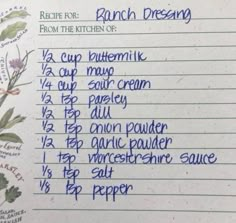 RECIPE FOR: Ranch Dressing
FROM THE KITCHEN OF:
1/2 cup buttermilk
1/2 cup mayo
1/4 cup sour cream
1/2 tsp parsley
1/2 tsp dill
1/2 tsp onion powder
1/2 tsp garlic powder
1 tsp worcestershire sauce
1/8 tsp salt
1/8 tsp pepper